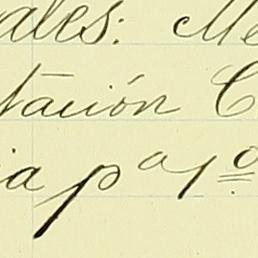 ales: Me
tación C
ia pª 1º